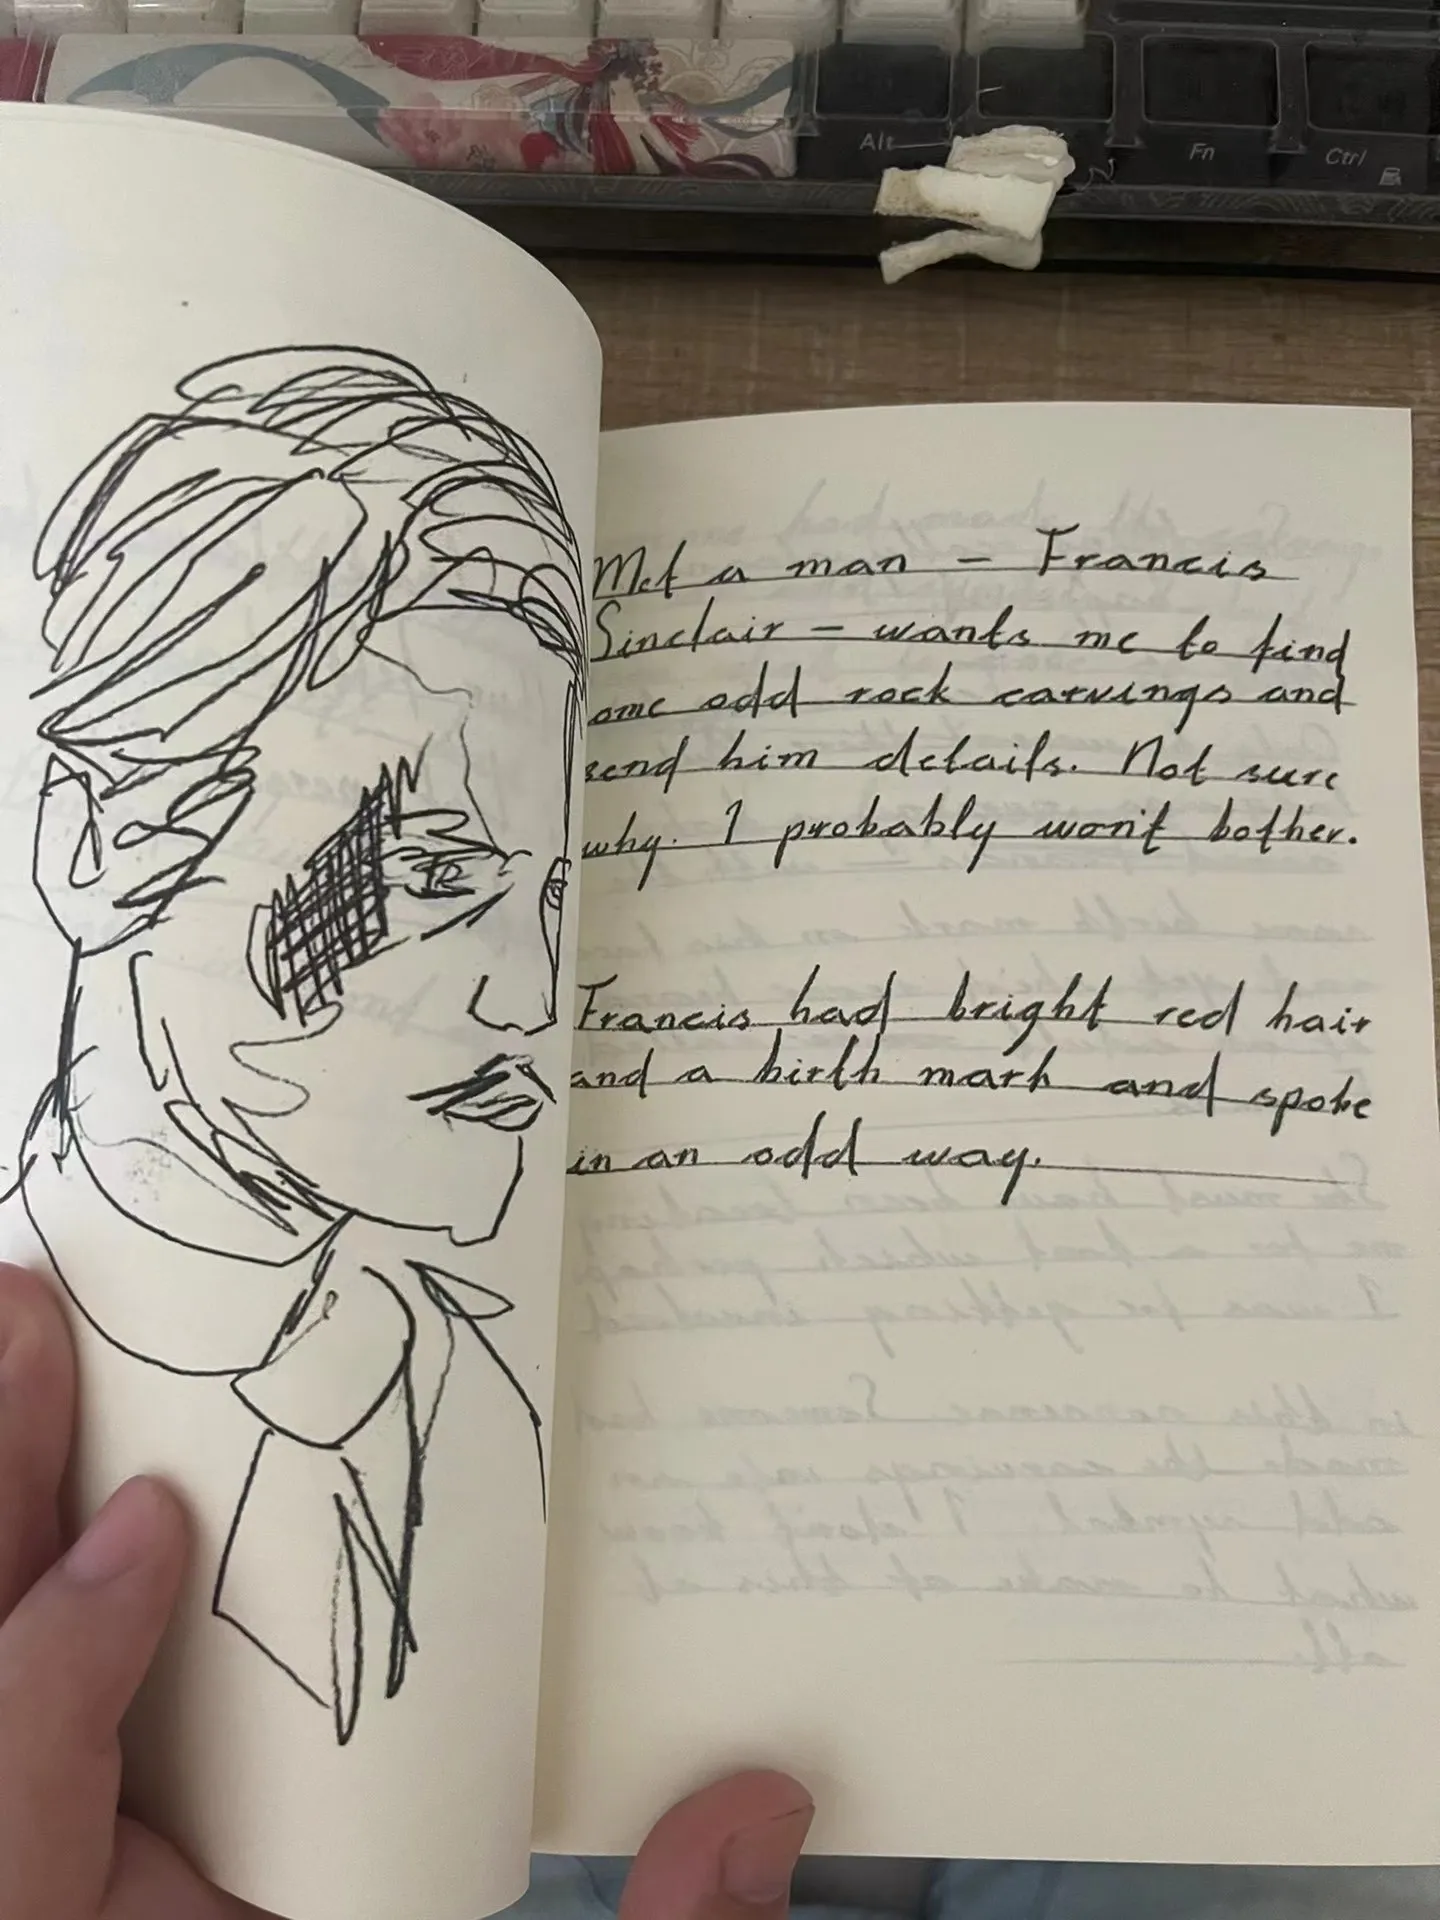 Alt
Fn
Ctrl
Met a man – Francis
Sinclair – wants me to find
ome odd rock carvings and
send him details. Not sure
why. I probably won't bother.
Francis had bright red hair
and a birth mark and spoke
in an odd way.